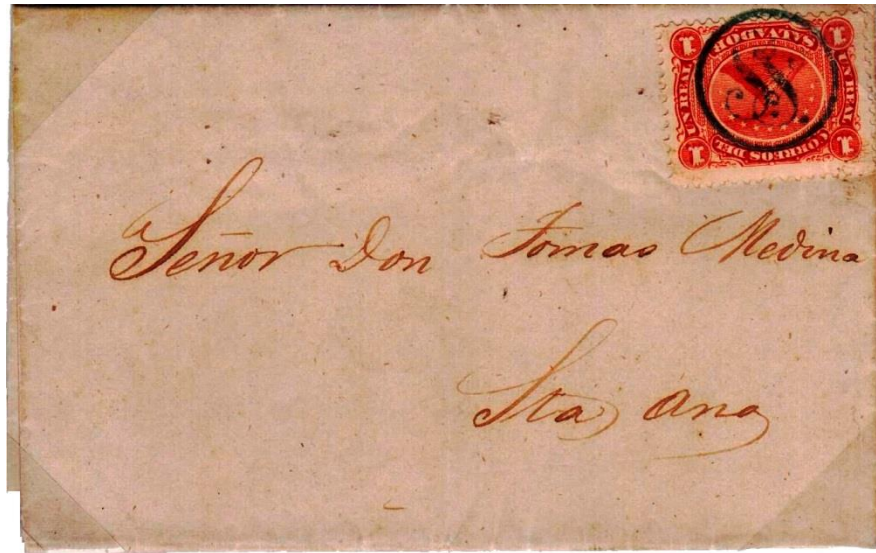 1 UN REAL 1
CORREOS DEL
SALVADOR
1 UN REAL 1
Señor Don Tomas Medina
Sta Ana